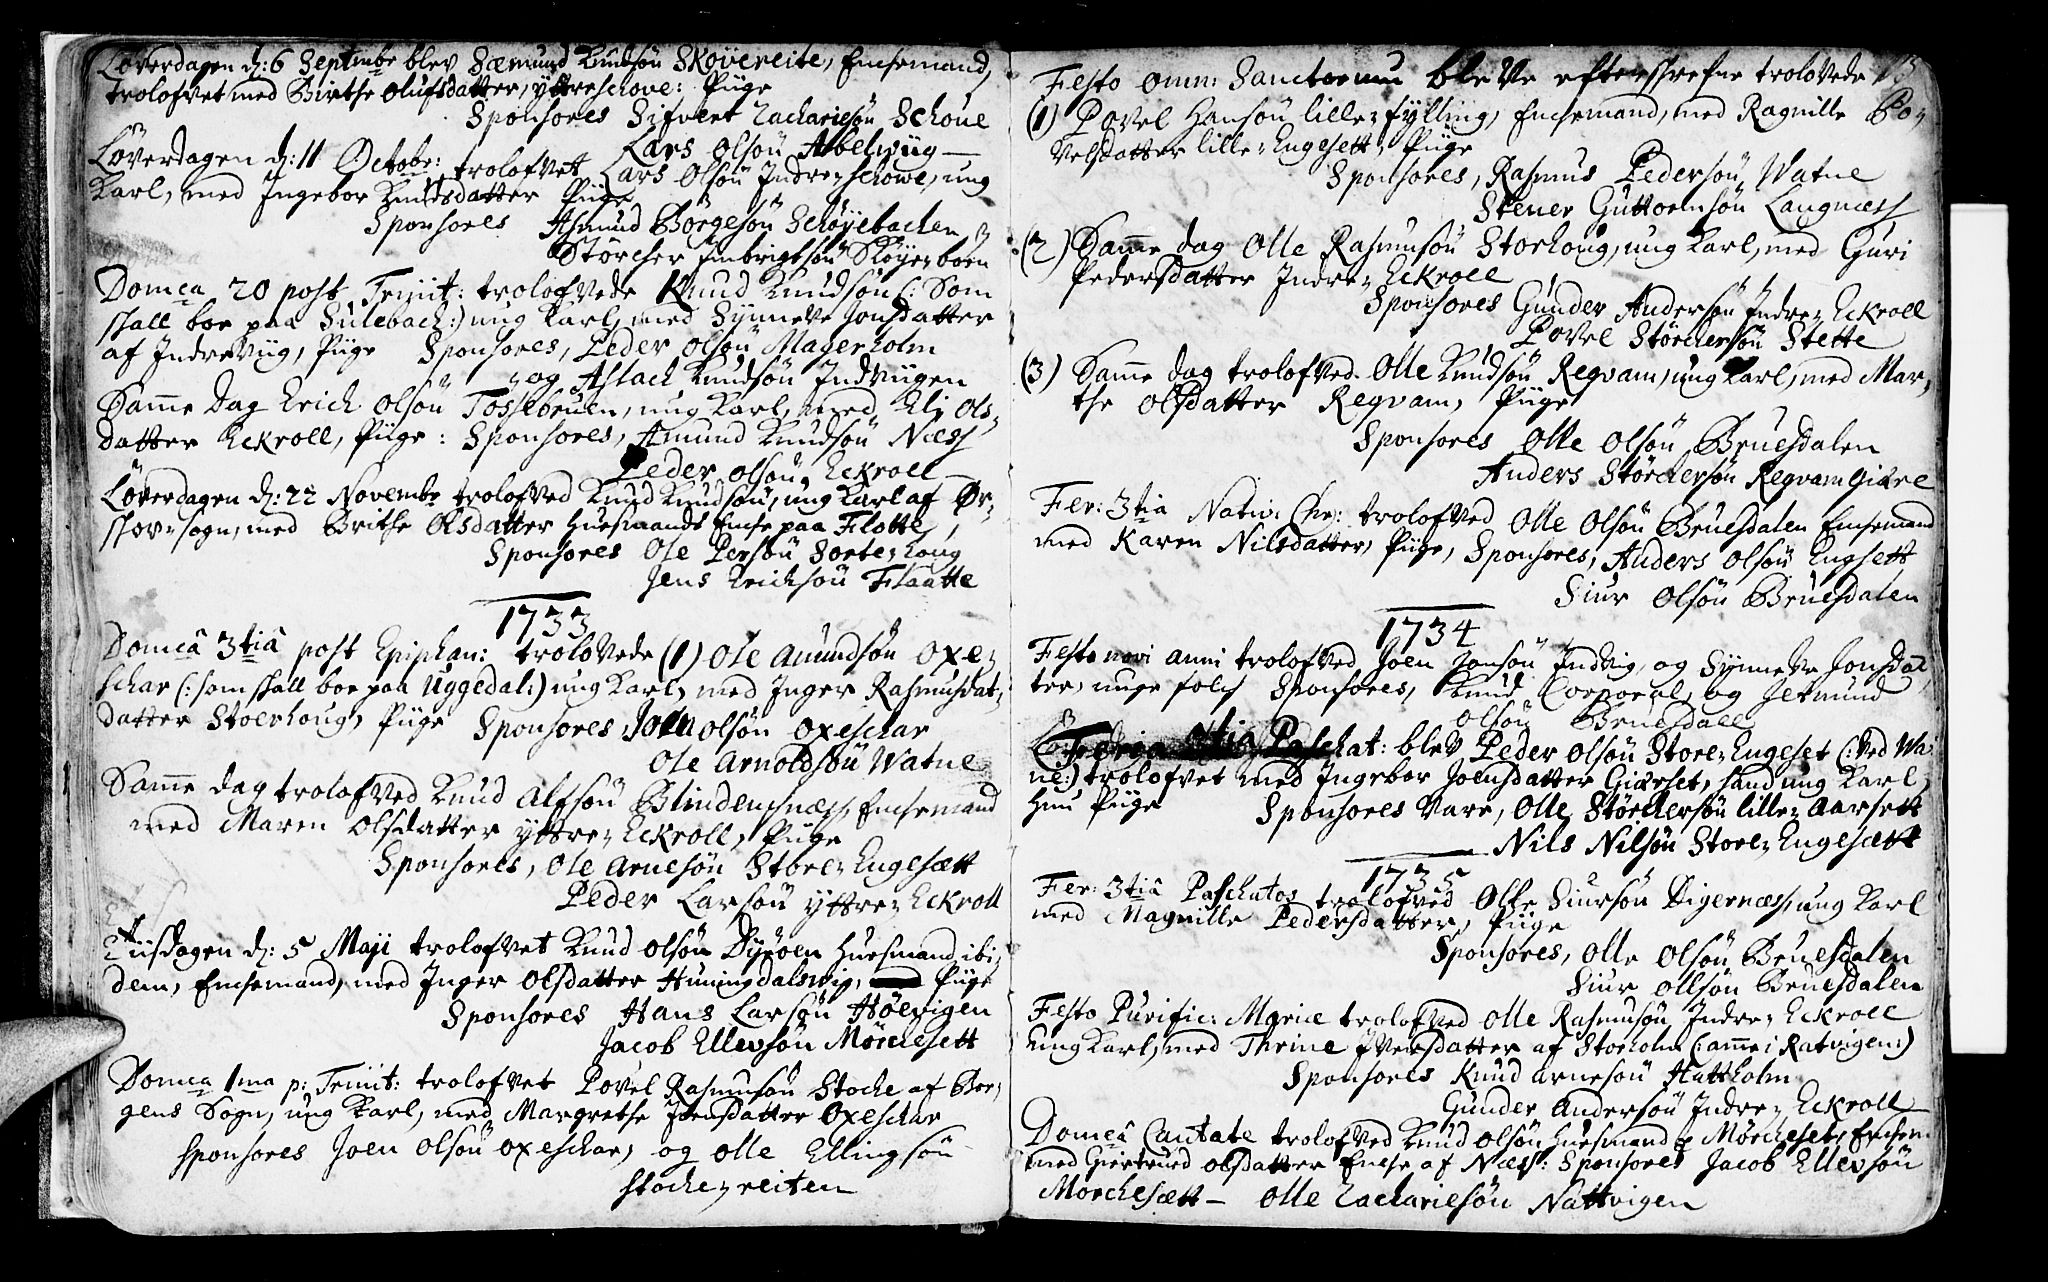 Löverdagen d: 6 Septimbe blev Sæmund Knudsøn Skövereite, Enchemand,
trolofvet med Birthe Olufsdatter, yttreschove: Piige
Sponsores Sifvert Zachariesön Schoue
Lars Olsön Abelwiig
Löverdagen d: 11 Octobe: trolofvet Lars Olsön Indre Schowe, ung
Karl, med Ingebor Knudsdatter Piige
Sponsores Asmund Börgesön Schöyebachen
Störcher Embrigtsön Sköyeböen
Domca 20 post Trinit: trolofvede Knud Knudsön (: Som
skall boe paa Sulebach:) ung Karl, med Synneve Jonsdatter
af Indreviig, Piige Sponsores, Peder Olsön Magerholm
og Aslach Knudsön Indviigen
Samme Dag Erich Olsön Tossebruen, ung Karl, med Eli Ols-
datter Eckroll, Piige: Sponsores, Amund Knudsön Næss
Peder Olsön, Eckroll
Löverdagen d: 22 Novembe trolofved Knud Knudsön, ung Karl af Ør-
skov-sogn, med Brithe Olsdatter Huusmands Encke paa Flotte,
Sponsores Ole Persön Sorte-houg
Jens Erichsön Flaatte
1733
Domcâ 3tiâ post Epiphan: trolovede (1) Ole Amundsön Oxe-
schar (: som skall boe paa Uggedal:) ung Karl, med Inger Rasmusdat-
datter Stoerhoug, Piige Sponsores Joen Olsön Oxeschar
Ole Arnoldsön Watne
Samme dag trolofved Knud Alfsön Blindemsnæss, Enchemand
med Maren Olsdatter yttre Eckroll, Piige
Sponsores, Ole Arnesön Store Engesætt
Peder Larsön yttre Eckroll
Tiisdagen d: 5 Maji trolofvet Knud Olsön Dyröen Huusmand ibi-
dem, Enchemand, med Inger Olsdatter Huningdalsvig, Piige
Sponsores Hans Larsön Höevigen
Jacob Ellevsön Mörchesett
Domca 1ma p: Trinit: trolofvet Povel Rasmusön Stoche af Bor-
gens Sogn, ung Karl, med Margrethe Joensdatter Oxeschar
Sponsores Joen Olsön Oxeschar, og Olle Ellingsön
Stochereiten
Festo Omn: Sanctorum bleve efterskrefne trolovede
(1) Povel Hansön lille Fylling, Enchemand, med Ragnille Po-
velsdatter lille Engesett, Piige
Sponsores, Rasmus Pedersön, Watne
Stener Guttormsön Langnæss
(2) Samme dag Olle Rasmusön Storhoug, ung Karl, med Guri
Pedersdatter Indre Eckroll
Sponsores Gunder Andersön Indre Eckroll
Povel Störchersön Stette
(3) Samme dag trolofved Olle Knudsön Regvam, ung Karl, med Mar-
the Olsdatter Regvam, Piige
Sponsores Olle Olsön Bruesdalen
Anders Störchersön Regvam Giære
Fer: 3tia Nativ: Chr: trolofved Olle Olsön Bruesdalen Enchemand
med Karen Nilsdatter, Piige, Sponsores, Anders Olsön Engsett
Siur Olsön Bruesdalen
1734
Festo novi anni trolofved Joen Jonsön Indvig, og Synneve Jonsdat-
ter, unge folch Sponsores, Knud Corporal, og Jetmund
Olsön Bruesdall
Feria 3tia Paschat: blev Peder Olsön Store Engeset (: ved Wa-
ne:) trolofvet med Ingebor Joensdatter Giærset, hand ung Karl,
hun Piige Sponsores vare, Olle Störchersön lille Aarsett
Nils Nilsön Store Engesætt
1735
Fer: 3tiâ Paschatos trolofved Olle Siursön Digernæss, ung Karl
med Magnille Pedersdatter, Piige
Sponsores, Olle Olsön Bruesdalen
Siur Ollsön Bruesdalen
Festo Purific: Mariæ trolofved Olle Rasmusön Indre Eckroll
ung Karl, med Thrine Iversdatter af Storholm (: amme i Ratvigen:)
Sponsores Knud Arnesön Hattholm
Gunder Andersön Indre Eckroll
Domcâ Cantate trolofved Knud Olsön Huusmand p Mörcheset, Enchem
med Giertrued Olsdatter Encke af Næss: Sponsores Jacob Ellevsön
Mörchesætt - Olle Zachariesön Nattvigen